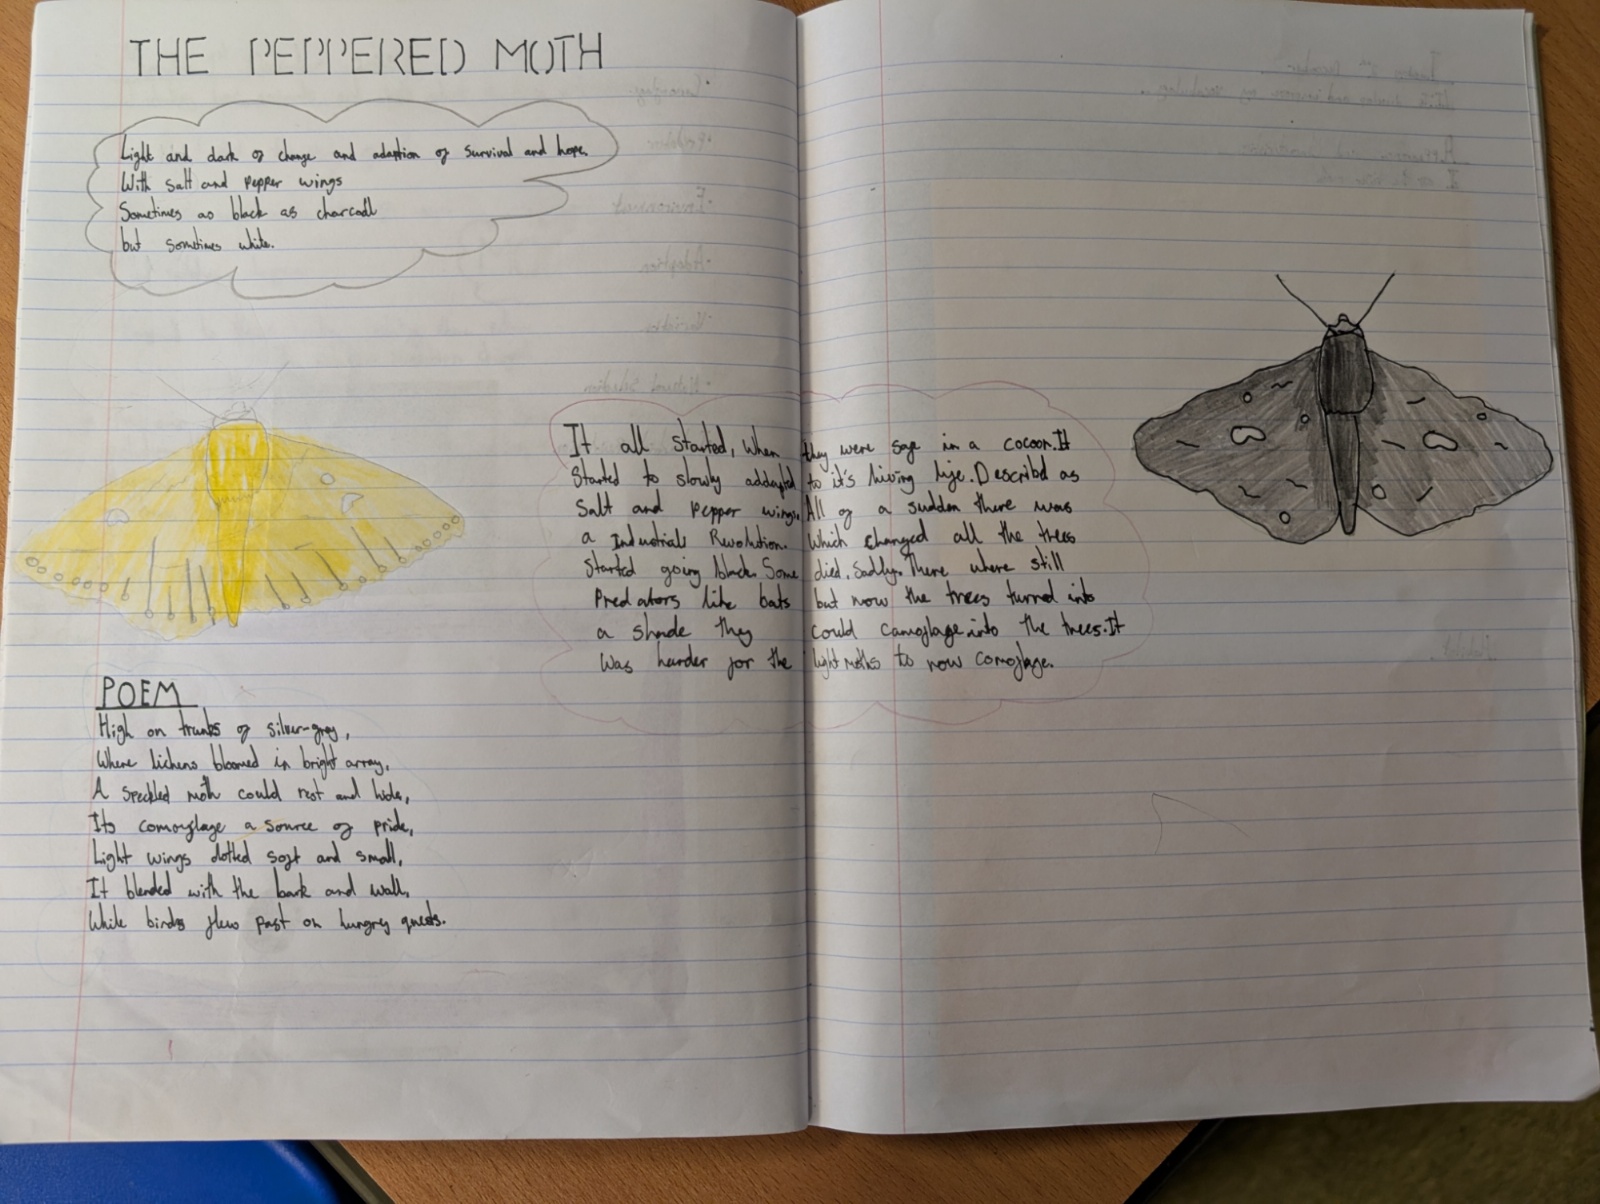 THE PEPPERED MOTH
Light and dark of change and adaption of survival and hope.
With salt and pepper wings
Sometimes as black as charcoal
but sometimes white.
It all started, when they were safe in a cocoon. It
Started to slowly addapted to it's living life. Described as
Salt and Pepper wings. All of a sudden there was
a Industrials Revolution. Which changed all the trees
Started going black. Some died. Sadly. There where still
Predators like bats but now the trees turned into
a shade they could camoflage into the trees. It
Was harder for the light moths to now camoflage.
POEM
High on trunks of silver-grey,
Where lichens bloomed in bright array,
A speckled moth could rest and hide,
Its camouflage a source of pride,
Light wings dotted soft and small,
It blended with the bark and wall,
While birds flew past on hungrey quests.